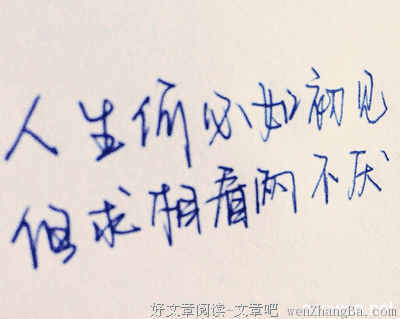 人生何必如初见
但求相看两不厌
好文章阅读-文章吧 wenZhangBa.com